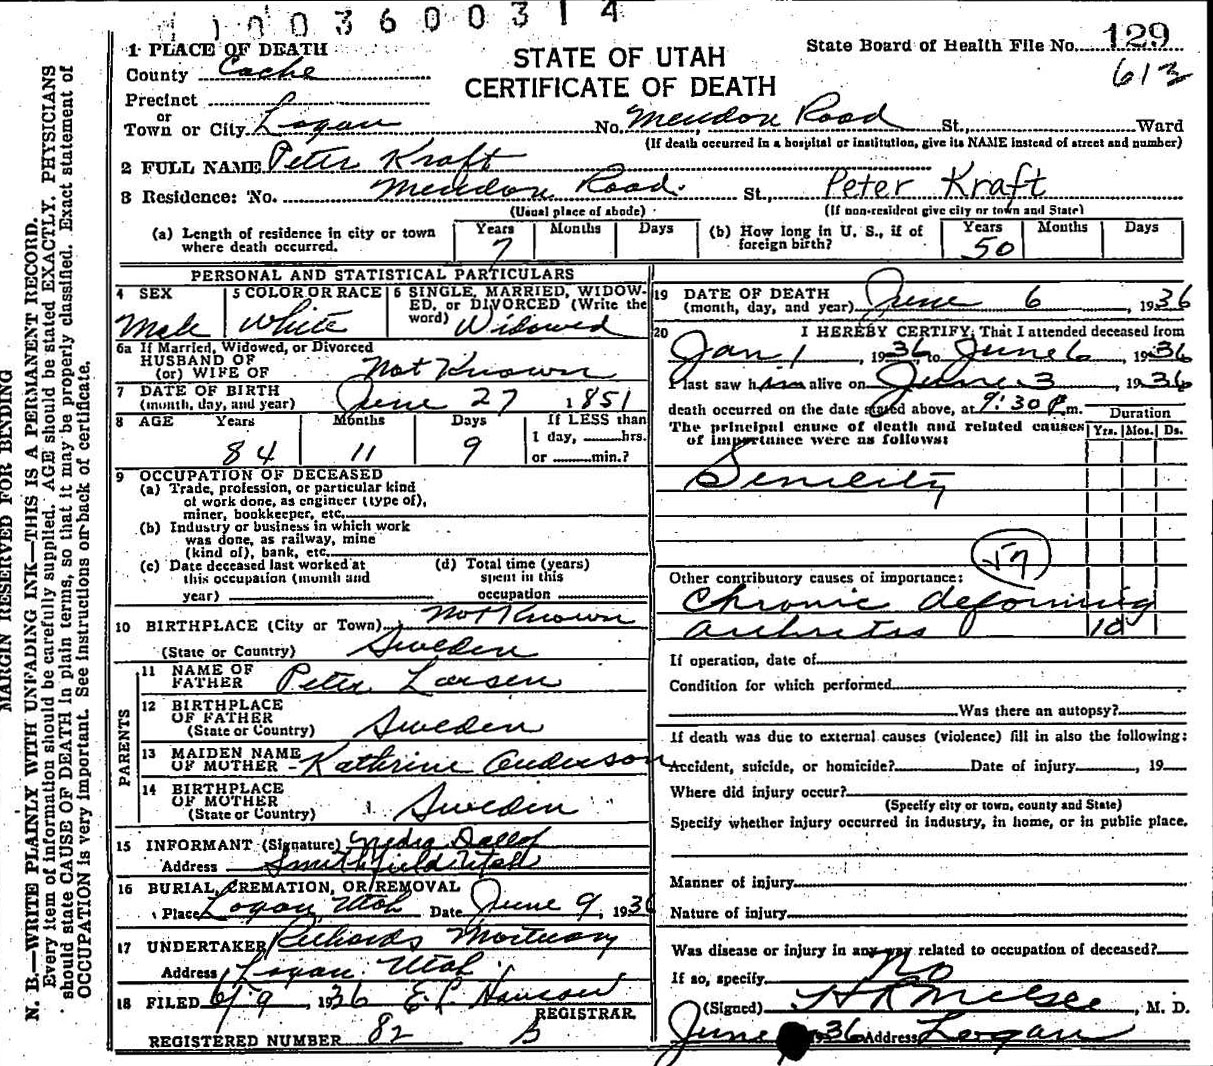 1 1 0 0 3 6 0 0 3 1 4
STATE OF UTAH
CERTIFICATE OF DEATH
State Board of Health File No. 129
613
1 PLACE OF DEATH
County Cache
Precinct
or
Town or City Logan No. Mendon Road St., Ward
(If death occurred in a hospital or institution, give its NAME instead of street and number)
2 FULL NAME Peter Kraft
3 Residence: No. Mendon Road. St., Peter Kraft
(Usual place of abode) (If non-resident give city or town and State)
(a) Length of residence in city or town where death occurred. Years 7 Months Days
(b) How long in U. S., if of foreign birth? Years 50 Months Days
PERSONAL AND STATISTICAL PARTICULARS
4 SEX Male
5 COLOR OR RACE White
6 SINGLE, MARRIED, WIDOW-
ED, or DIVORCED (Write the
word) Widowed
6a If Married, Widowed, or Divorced
HUSBAND OF
(or) WIFE OF Not Known
7 DATE OF BIRTH
(month, day, and year) June 27 1851
8 AGE Years Months Days If LESS than
84 11 9 1 day, hrs.
or min.?
9 OCCUPATION OF DECEASED
(a) Trade, profession, or particular kind
of work done, as engineer (type of),
miner, bookkeeper, etc.
(b) Industry or business in which work
was done, as railway, mine
(kind of), bank, etc.
(c) Date deceased last worked at
this occupation (month and
year)
(d) Total time (years)
spent in this
occupation
10 BIRTHPLACE (City or Town) Not Known
(State or Country) Sweden
PARENTS
11 NAME OF
FATHER Peter Larsen
12 BIRTHPLACE
OF FATHER
(State or Country) Sweden
13 MAIDEN NAME
OF MOTHER Kathrine Anderson
14 BIRTHPLACE
OF MOTHER
(State or Country) Sweden
15 INFORMANT (Signature)
Address Smithfield Utah
16 BURIAL, CREMATION, OR REMOVAL
Place Logan, Utah Date June 9, 1936
17 UNDERTAKER Richards Mortuary
Address Logan. Utah.
18 FILED 6/9, 1936 Hanson
REGISTRAR
REGISTERED NUMBER 82
19 DATE OF DEATH
(month, day, and year) June 6, 1936
20 I HEREBY CERTIFY, That I attended deceased from
Jan 1, 1936, to June 6, 1936
I last saw him alive on June 3, 1936
death occurred on the date stated above, at 9:30 P.m.
The principal cause of death and related causes
of importance were as follows:
Duration
Yrs. Mos. Ds.
Senility
57
Other contributory causes of importance:
Chronic deforming
arthritis 10
If operation, date of
Condition for which performed
Was there an autopsy?
If death was due to external causes (violence) fill in also the following:
Accident, suicide, or homicide? Date of injury, 19
Where did injury occur?
(Specify city or town, county and State)
Specify whether injury occurred in industry, in home, or in public place.
Manner of injury
Nature of injury
Was disease or injury in any way related to occupation of deceased?
No
If so, specify
(Signed), M. D.
June 1936 Address Logan
MARGIN RESERVED FOR BINDING
N. B.—WRITE PLAINLY WITH UNFADING INK—THIS IS A PERMANENT RECORD.
Every item of information should be carefully supplied. AGE should be stated EXACTLY. PHYSICIANS
should state CAUSE OF DEATH in plain terms, so that it may be properly classified. Exact statement of
OCCUPATION is very important. See instructions on back of certificate.